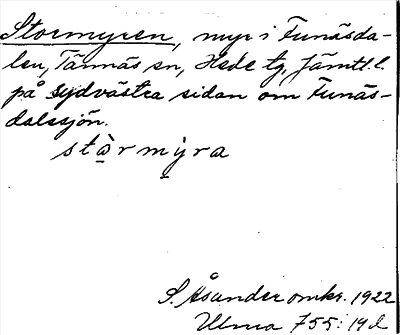 Stormyren, myr i Funäsda-
len, Tännäs sn, Hede tg, Jämtl. l.
på sydvästra sidan om Funäs-
dalssjön.
stàrmỳra
S. Åsander omkr. 1922
Ulma 755:19d